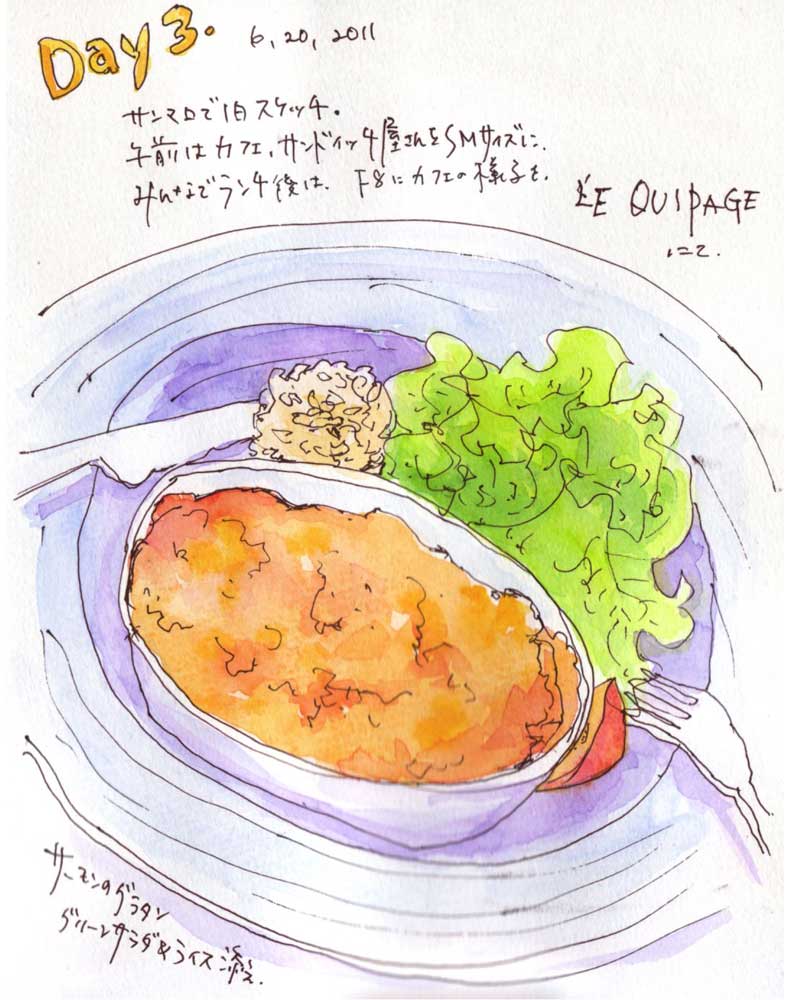 Day 3. 6, 20, 2011
サンマロで1日スケッチ.
午前はカフェ,サンドイッチ屋さんをSMサイズに.
みんなでランチ後は. F8にカフェの様子を.
L'E QUIPAGE
にて.
サーモンのグラタン
グリーンサラダ&ライス添え.